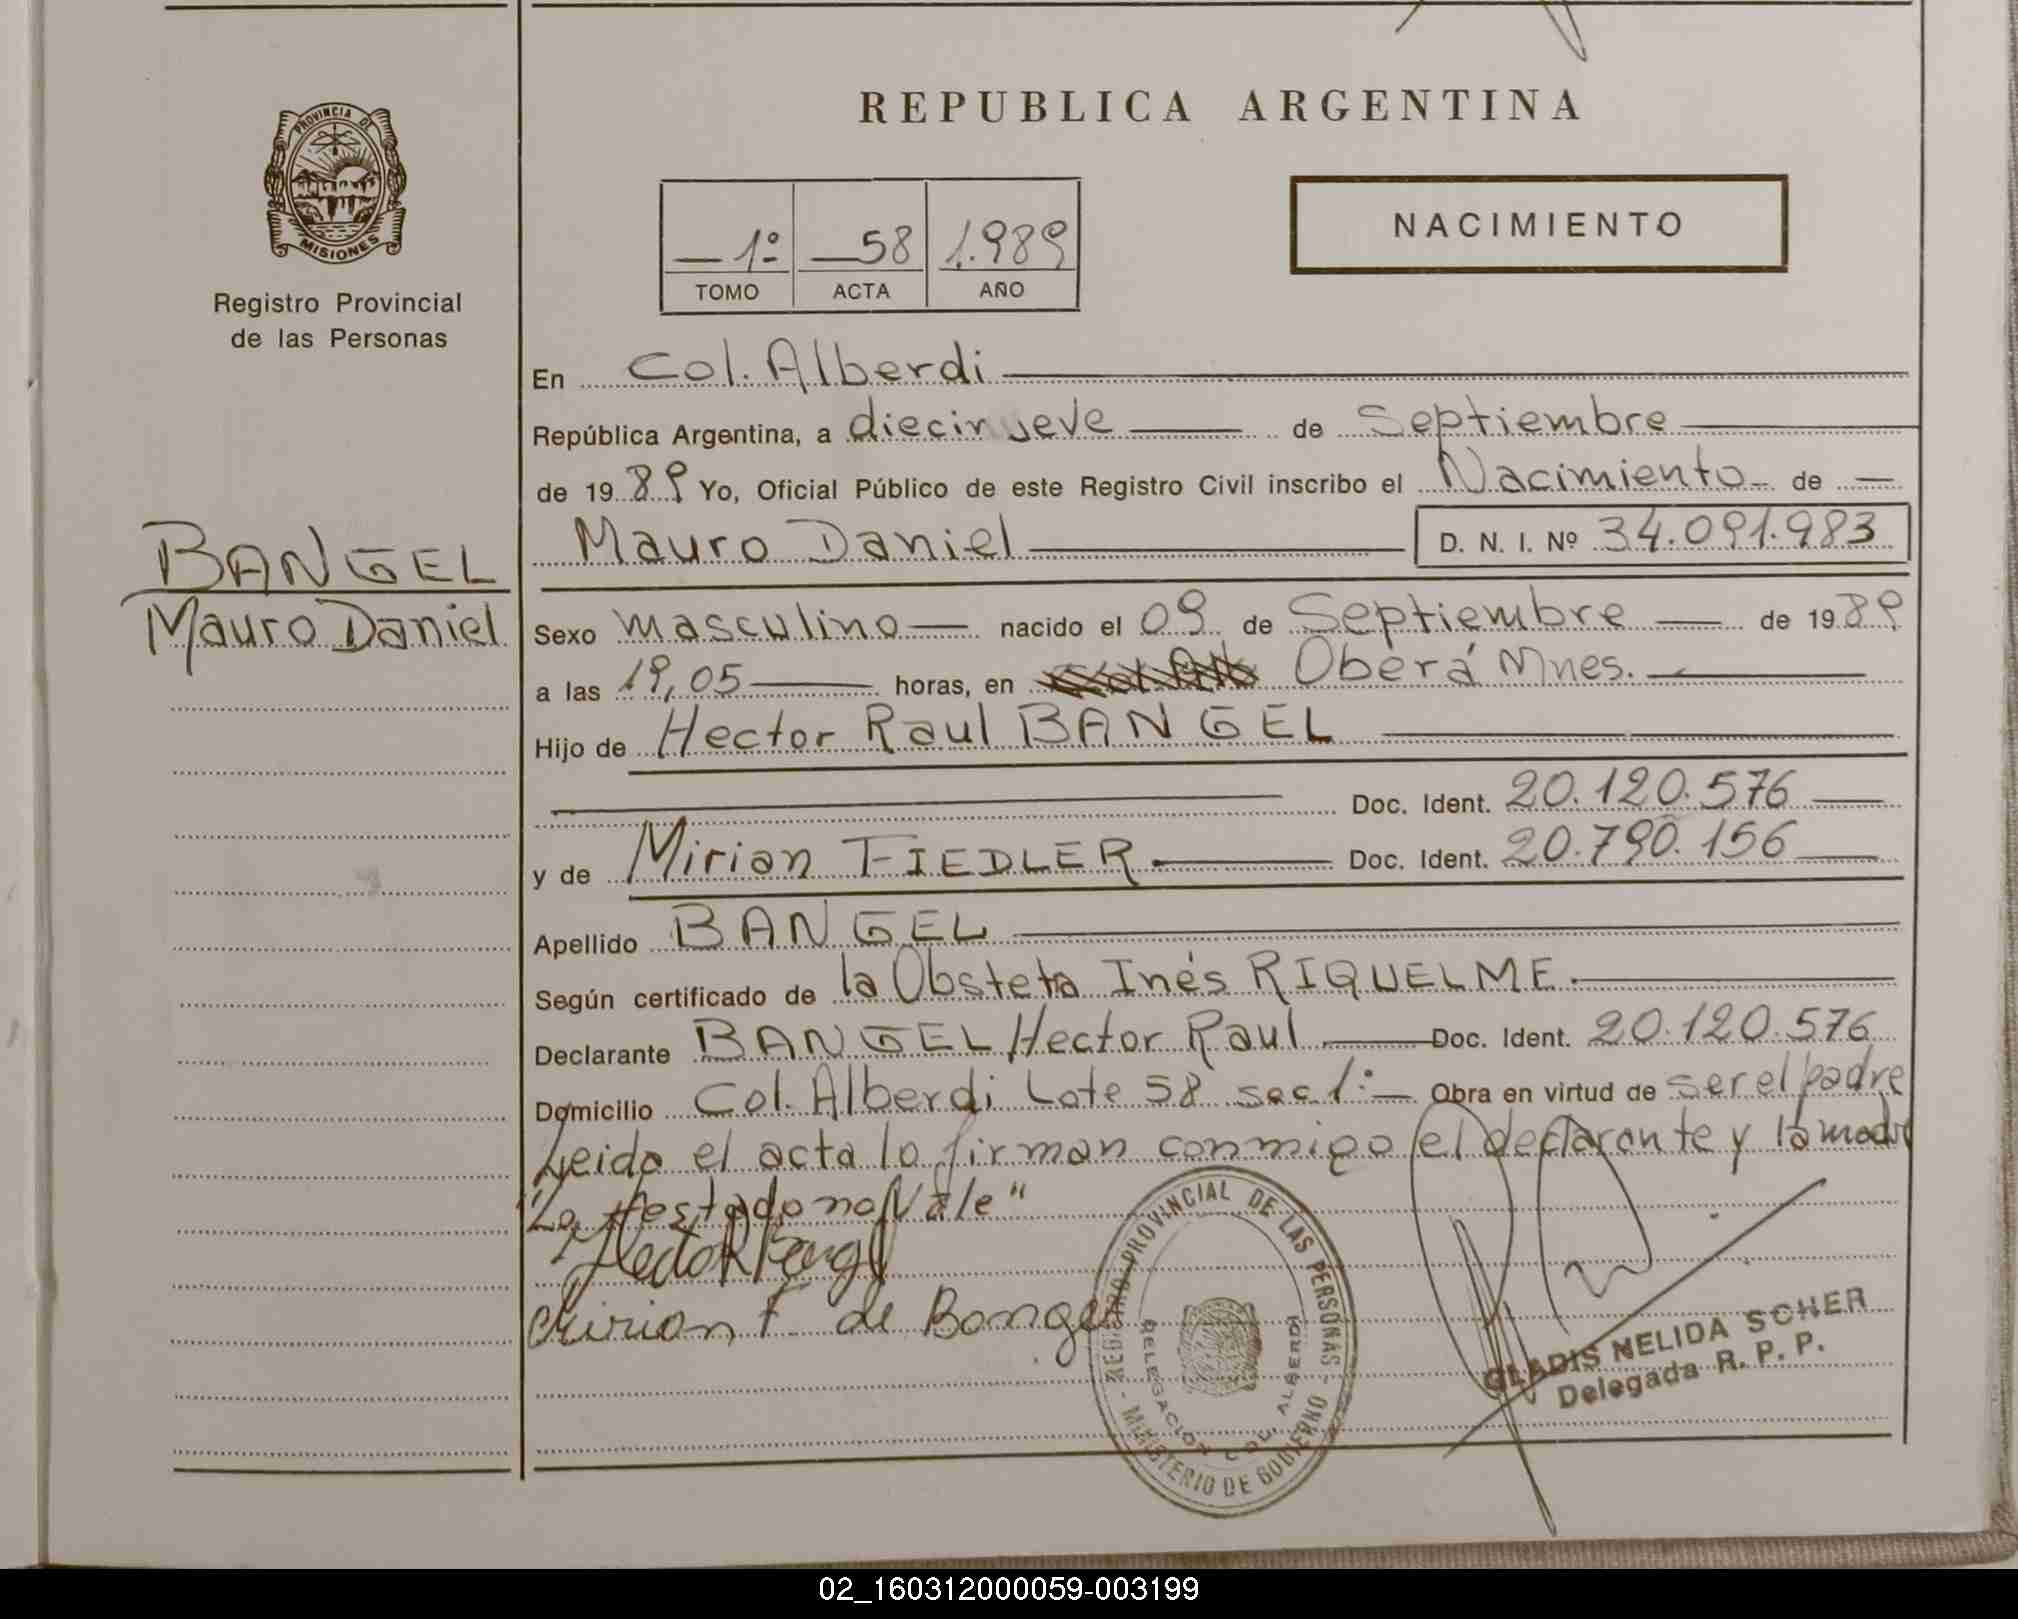 REPUBLICA ARGENTINA
PROVINCIA DE
MISIONES
Registro Provincial
de las Personas
1º 58 1.989
TOMO ACTA AÑO
NACIMIENTO
En Col. Alberdi
República Argentina, a diecinueve de Septiembre
de 1989 Yo, Oficial Público de este Registro Civil inscribo el Nacimiento de
Mauro Daniel D. N. I. Nº 34.091.983
BANGEL
Mauro Daniel
Sexo masculino nacido el 09 de Septiembre de 1989
a las 19,05 horas, en Oberá Mnes.
Hijo de Hector Raul BANGEL
Doc. Ident. 20.120.576
y de Mirian FIEDLER Doc. Ident. 20.790.156
Apellido BANGEL
Según certificado de la Obsteta Inés RIQUELME.
Declarante BANGEL Hector Raul Doc. Ident. 20.120.576
Domicilio Col. Alberdi Lote 58 sec 1º Obra en virtud de ser el padre
Leida el acta lo firman conmigo el declarante y la madre
"Lo testado no Vale"
Hector R Bangel
Mirian F. de Bangel
REGISTRO PROVINCIAL DE LAS PERSONAS - MINISTERIO DE GOBIERNO -
DELEGACION COL. ALBERDI
GLADIS NELIDA SCHER
Delegada R. P. P.
02_160312000059-003199